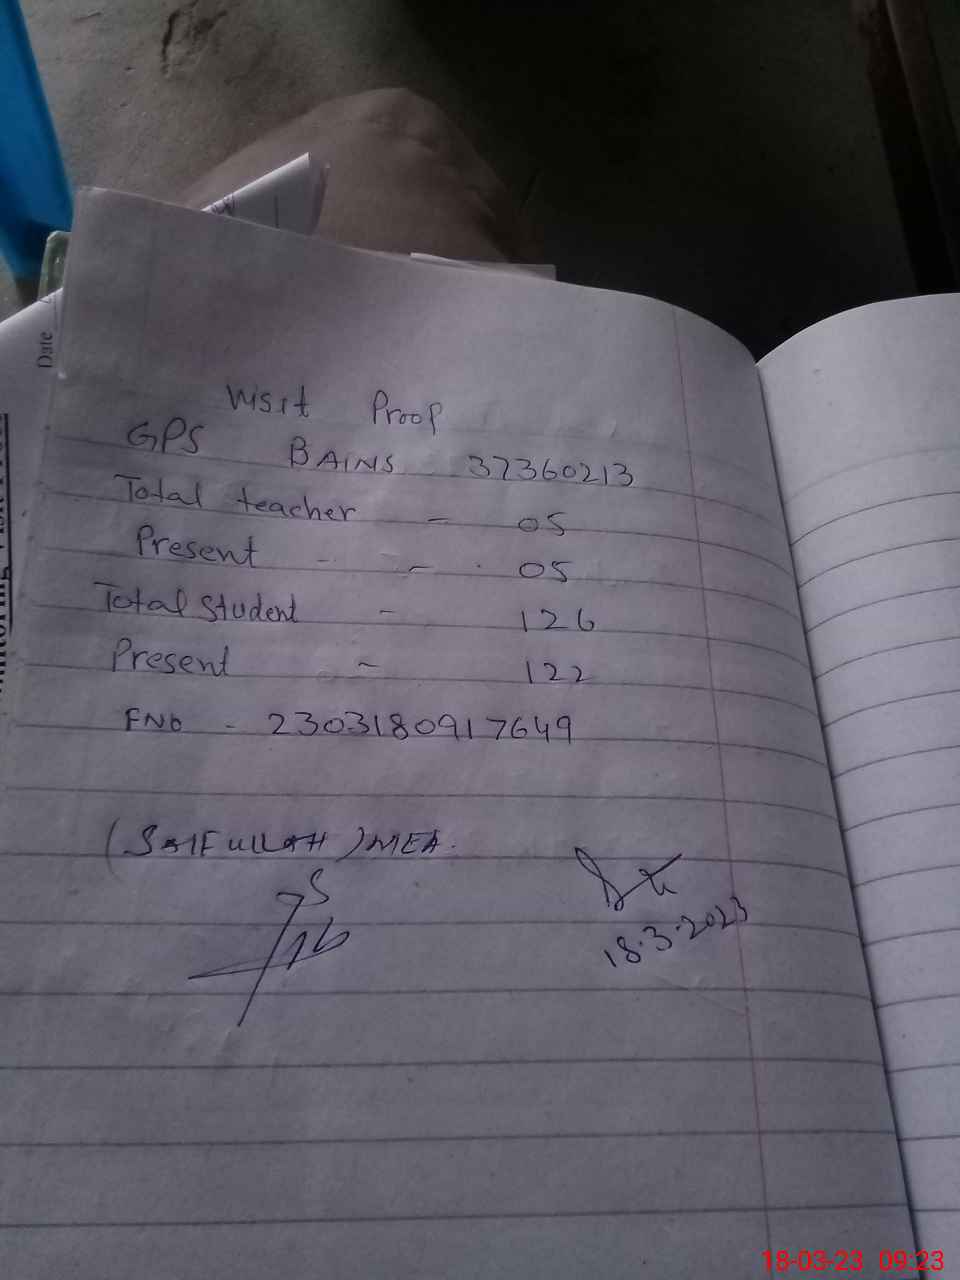 Date
Visit Proop
GPS BAINS 37360213
Total teacher - 05
Present - - . 05
Total Student - 126
Present - 122
FNO - 2303180917649
(SAIFULLAH) MEA.
18.3.2023
18-03-23 09:23